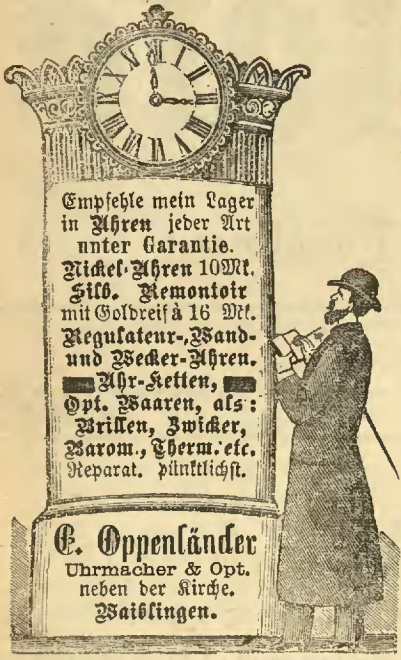 Empfehle mein Lager
in Uhren jeder Art
unter Garantie.
Nickel-Uhren 10Mk.
Silb. Remontoir
mit Goldreif à 16 Mk.
Regulateur-, Wand-
und Wecker-Uhren.
Uhr-Ketten,
Opt. Waaren, als:
Brillen, Zwicker,
Barom., Therm. etc.
Reparat. pünktlichst.
E. Oppenländer
Uhrmacher & Opt.
neben der Kirche.
Waiblingen.